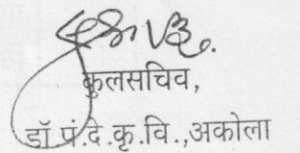 कुलसचिव,
डॉ.पं.दे.कृ.वि.,अकोला